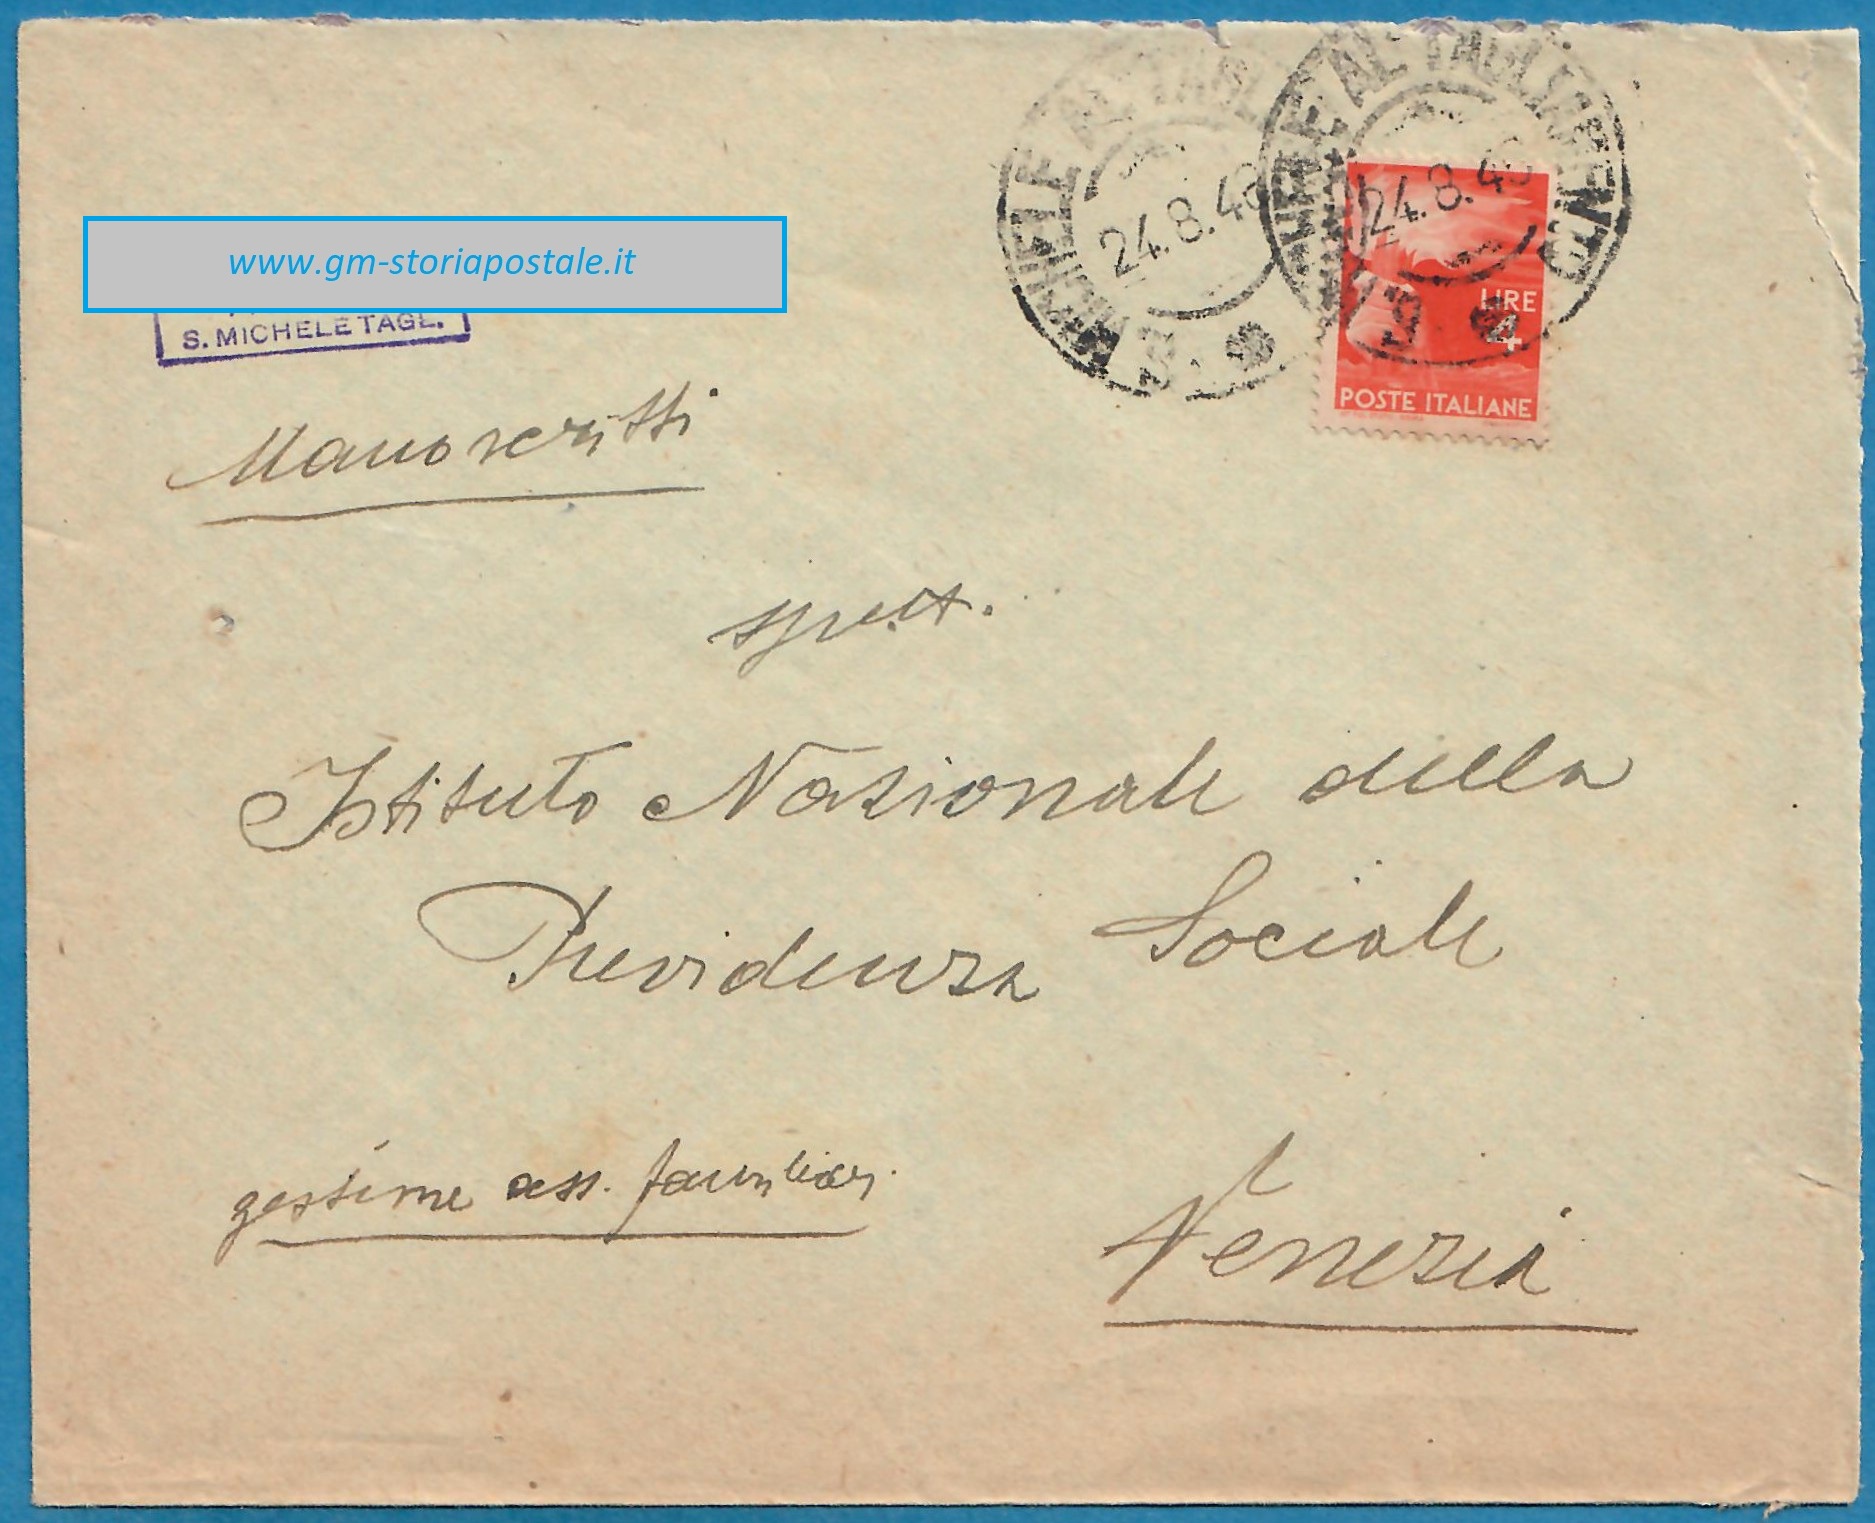 www.gm-storiapostale.it
S. MICHELE TAGL.
MICHELE AL TAGL
24.8.46
S. MICHELE AL TAGLIAMENTO
24.8.46
LIRE
4
POSTE ITALIANE
Manoscritti
Spett.
Istituto Nazionale della
Previdenza Sociale
gestione ass. familiari
Venezia